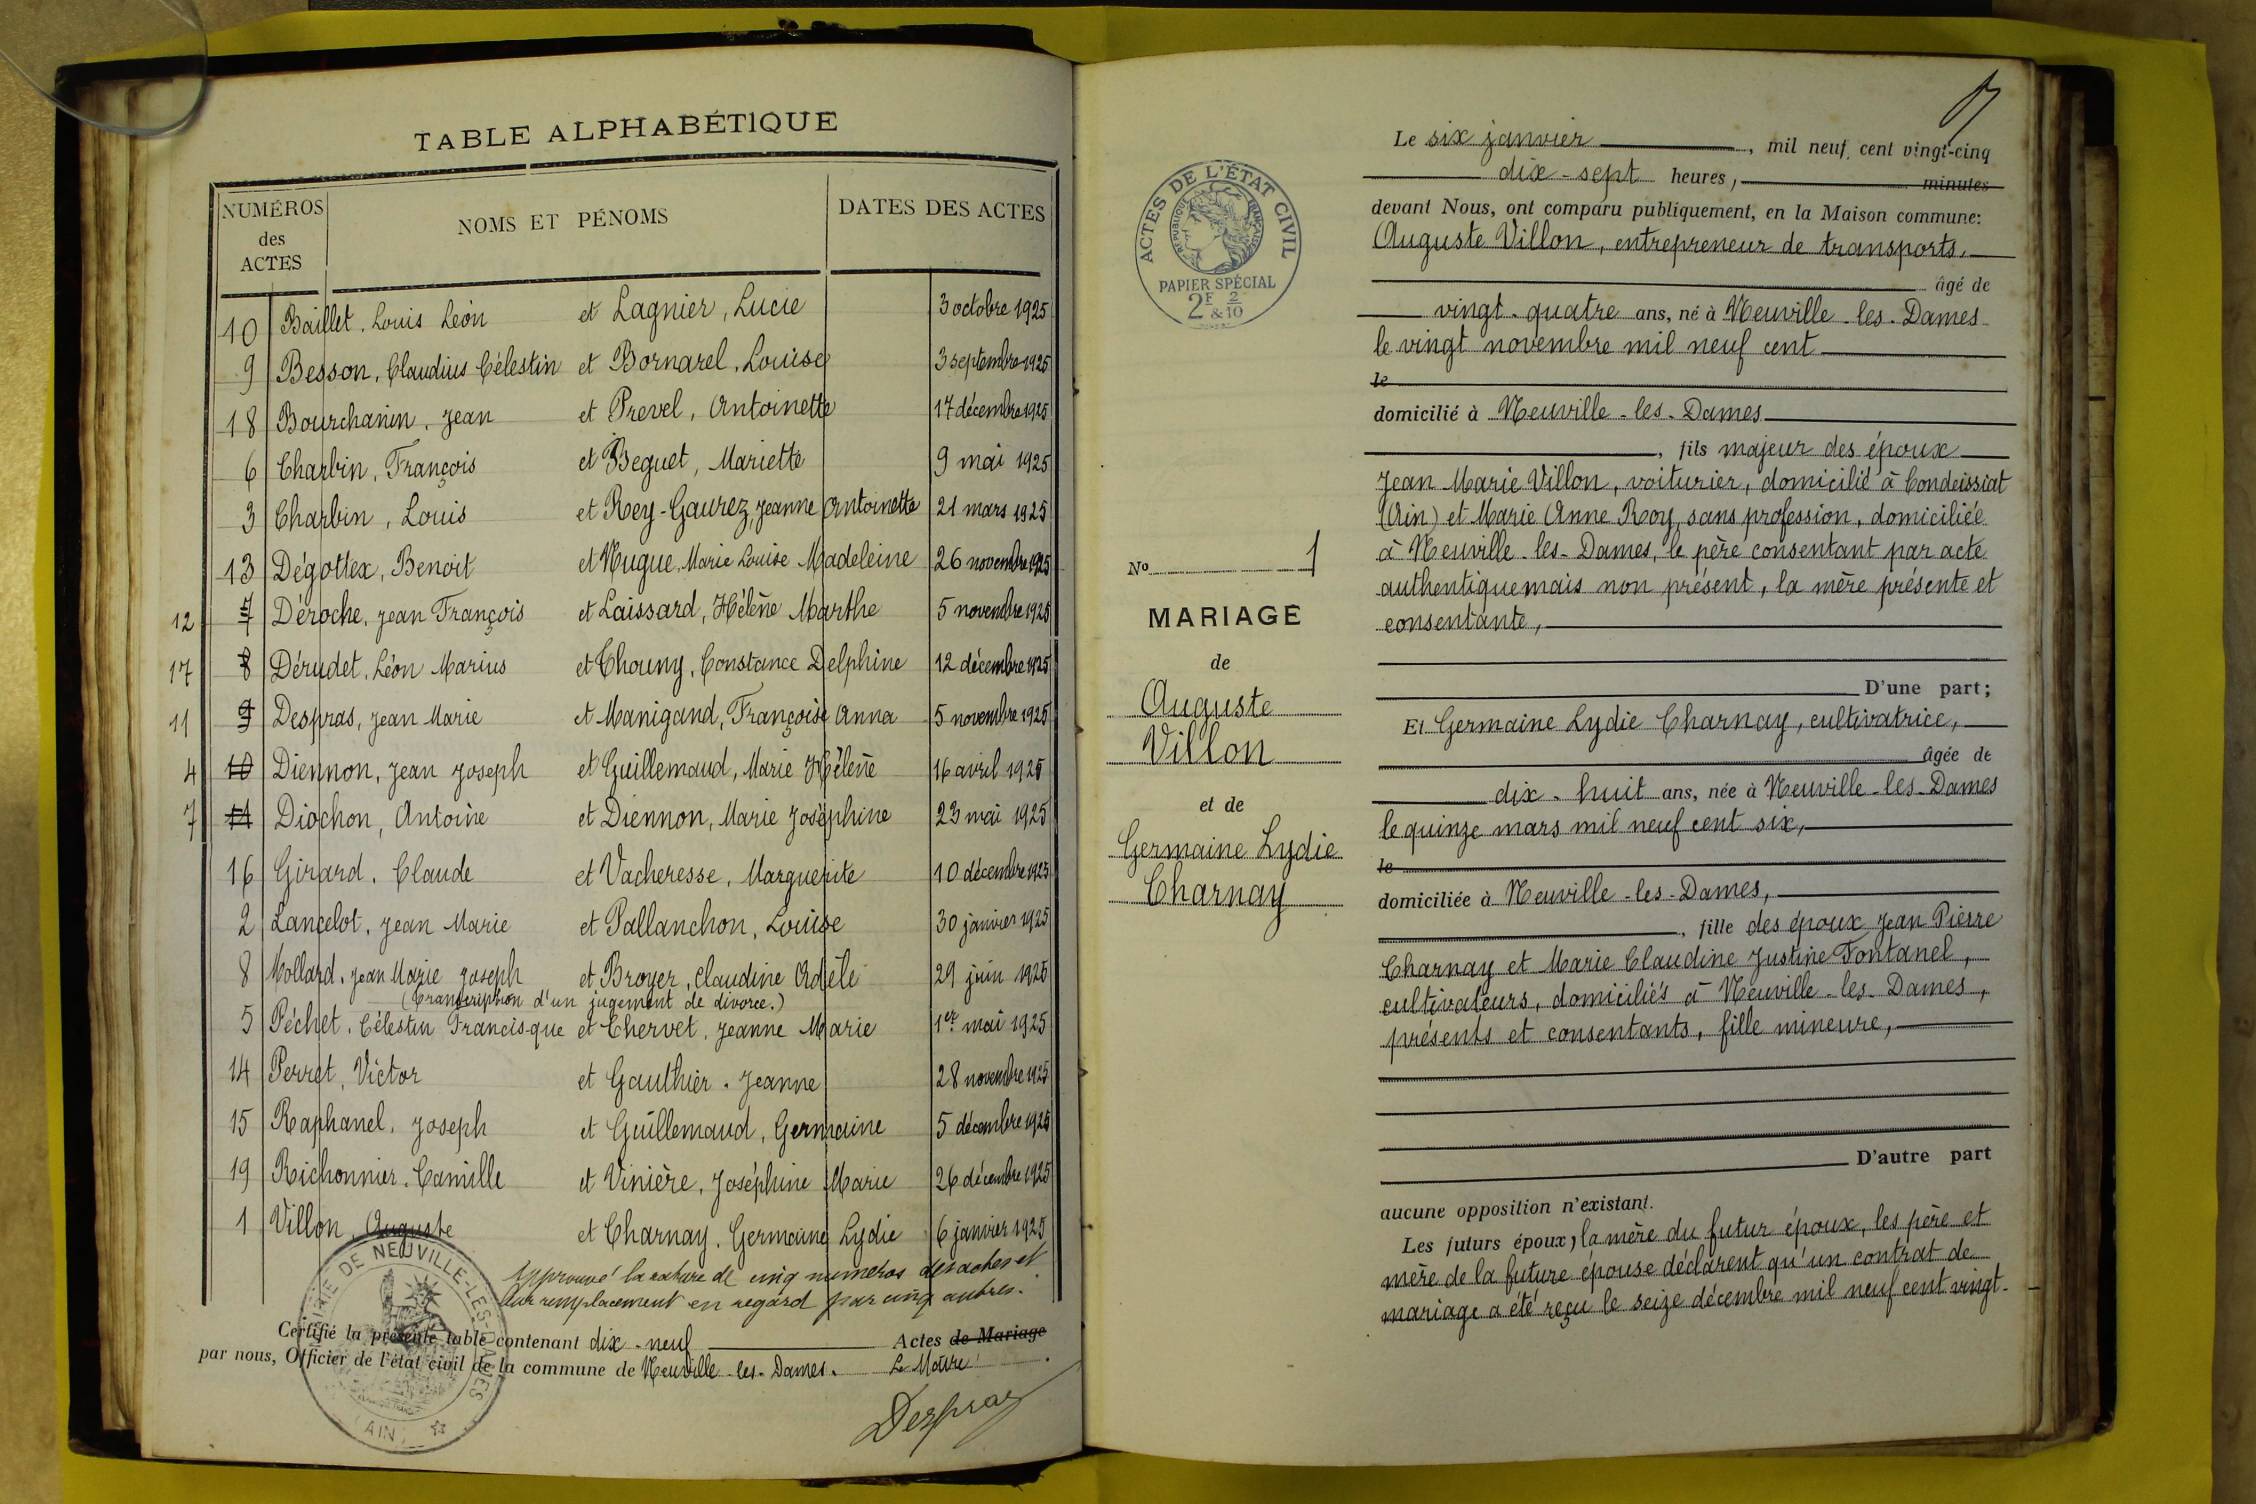 TABLE ALPHABÉTIQUE
NUMÉROS des ACTES NOMS ET PÉNOMS DATES DES ACTES
10 Baillet, Louis Léon et Lagnier, Lucie 3 octobre 1925
9 Besson, Claudius Célestin et Bornarel, Louise 3 septembre 1925
18 Bourchanin, Jean et Prevel, Antoinette 17 décembre 1925
6 Charbin, François et Beguet, Mariette 9 mai 1925
3 Charbin, Louis et Rey-Gaurez, Jeanne Antoinette 21 mars 1925
13 Dégottex, Benoit et Nugue, Marie Louise Madeleine 26 novembre 1925
12 7 Déroche, Jean François et Laissard, Hélène Marthe 5 novembre 1925
17 8 Dérudet, Léon Marius et Chouny, Constance Delphine 12 décembre 1925
11 9 Despras, Jean Marie et Manigand, Françoise Anna 5 novembre 1925
4 10 Diennon, Jean Joseph et Guillemaud, Marie Hélène 16 avril 1925
7 11 Diochon, Antoine et Diennon, Marie Joséphine 23 mai 1925
16 Girard, Claude et Vacheresse, Marguerite 10 décembre 1925
2 Lancelot, Jean Marie et Pallanchon, Louise 30 janvier 1925
8 Mollard, Jean Marie Joseph et Broyer, Claudine Adèle 29 juin 1925
(Transcription d'un jugement de divorce.)
5 Péchet, Célestin Francisque et Chervet, Jeanne Marie 1er mai 1925
14 Perret, Victor et Gauthier, Jeanne 28 novembre 1925
15 Raphanel, Joseph et Guillemaud, Germaine 5 décembre 1925
19 Richonnier, Camille et Vinière, Joséphine Marie 26 décembre 1925
1 Villon, Auguste et Charnay, Germaine Lydie 6 janvier 1925
Approuvé la rature de cinq numéros des actes et
leur remplacement en regard par cinq autres.
Certifié la présente table contenant dix-neuf Actes de Mariage
par nous, Officier de l'état civil de la commune de Neuville-les-Dames. Le Maire
Despras
MAIRIE DE NEUVILLE-LES-DAMES
(AIN)
ACTES DE L'ÉTAT CIVIL
RÉPUBLIQUE FRANÇAISE
PAPIER SPÉCIAL
2F & 2/10
No 1
MARIAGE
de
Auguste
Villon
et de
Germaine Lydie
Charnay
Le six janvier, mil neuf cent vingt-cinq
dix-sept heures, minutes
devant Nous, ont comparu publiquement, en la Maison commune:
Auguste Villon, entrepreneur de transports,
âgé de
vingt-quatre ans, né à Neuville-les-Dames
le vingt novembre mil neuf cent
le
domicilié à Neuville-les-Dames
, fils majeur des époux
Jean Marie Villon, voiturier, domicilié à Condeissiat
(Ain) et Marie Anne Roy, sans profession, domiciliée
à Neuville-les-Dames, le père consentant par acte
authentique mais non présent, la mère présente et
consentante,
D'une part;
Et Germaine Lydie Charnay, cultivatrice,
âgée de
dix-huit ans, née à Neuville-les-Dames
le quinze mars mil neuf cent six,
le
domiciliée à Neuville-les-Dames,
, fille des époux Jean Pierre
Charnay et Marie Claudine Justine Fontanel,
cultivateurs, domiciliés à Neuville-les-Dames,
présents et consentants, fille mineure,
D'autre part
aucune opposition n'existant.
Les futurs époux, la mère du futur époux, les père et
mère de la future épouse déclarent qu'un contrat de
mariage a été reçu le seize décembre mil neuf cent vingt-